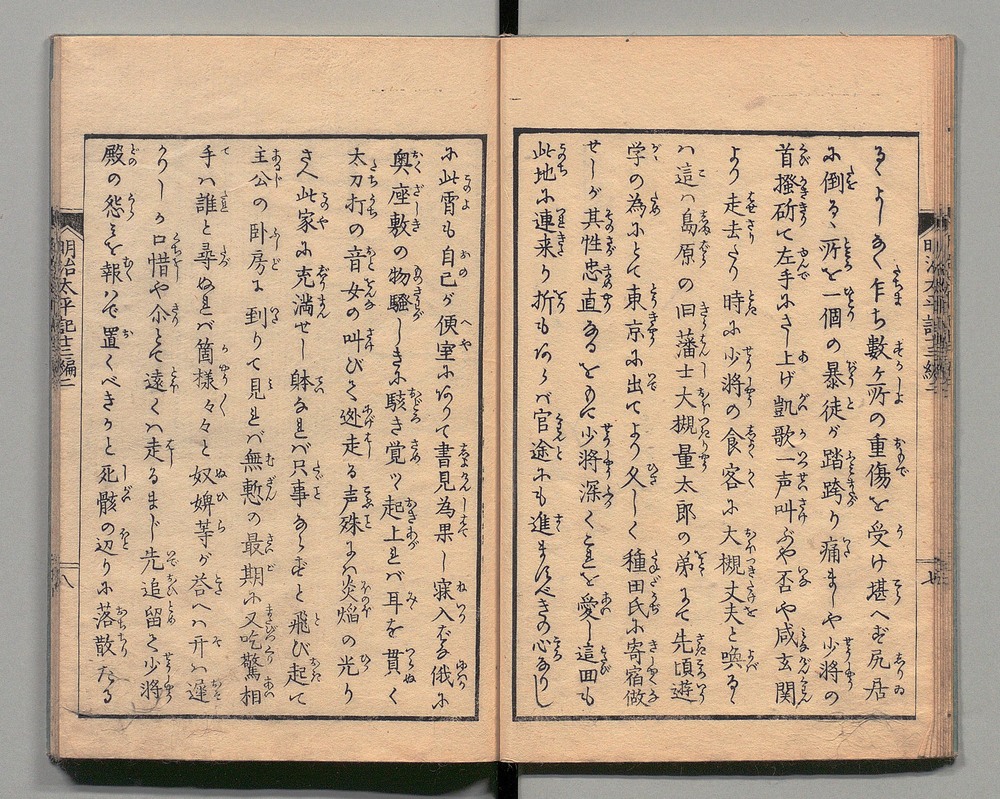 るよしあく乍ち數ヶ所の重傷を受け堪へず尻居
に倒るゝ所を一個の暴徒が踏跨り痛ましや少将の
首掻斫て左手にさし上げ凱歌一声叫ぶや否や咸玄関
より走去たり時に少将の食客に大槻丈夫と喚るゝ
ハ這ハ島原の旧藩士大槻量太郎の弟にて先頃遊
学の為にとて東京に出てより久しく種田氏に寄宿做
せしが其性忠直あるをもて少将深くこれを愛し這回も
此地に連来り折もあらバ官途にも進ますべきの心ありし
に此霄も自己が便室にありて書見為果し寐入ばな俄に
奥座敷の物騒しきに駭き覚ツ起上れバ耳を貫く
太刀打の音女の叫びて迯走る声殊にハ炎焔の光り
さへ此家に充満せし躰なれバ只事ならずと飛び起て
主公の卧房に到りて見れバ無慙の最期に又吃驚相
手ハ誰と尋ぬれバ箇様々々と奴婢等が荅へハ开ハ遅
かりしか口惜や尒とて遠くハ走るまじ先追留て少将
殿の怨ミを報ハで置くべきかと死骸の辺りに落散たる
明治太平記十三編二
明治太平記十三編二
七
八